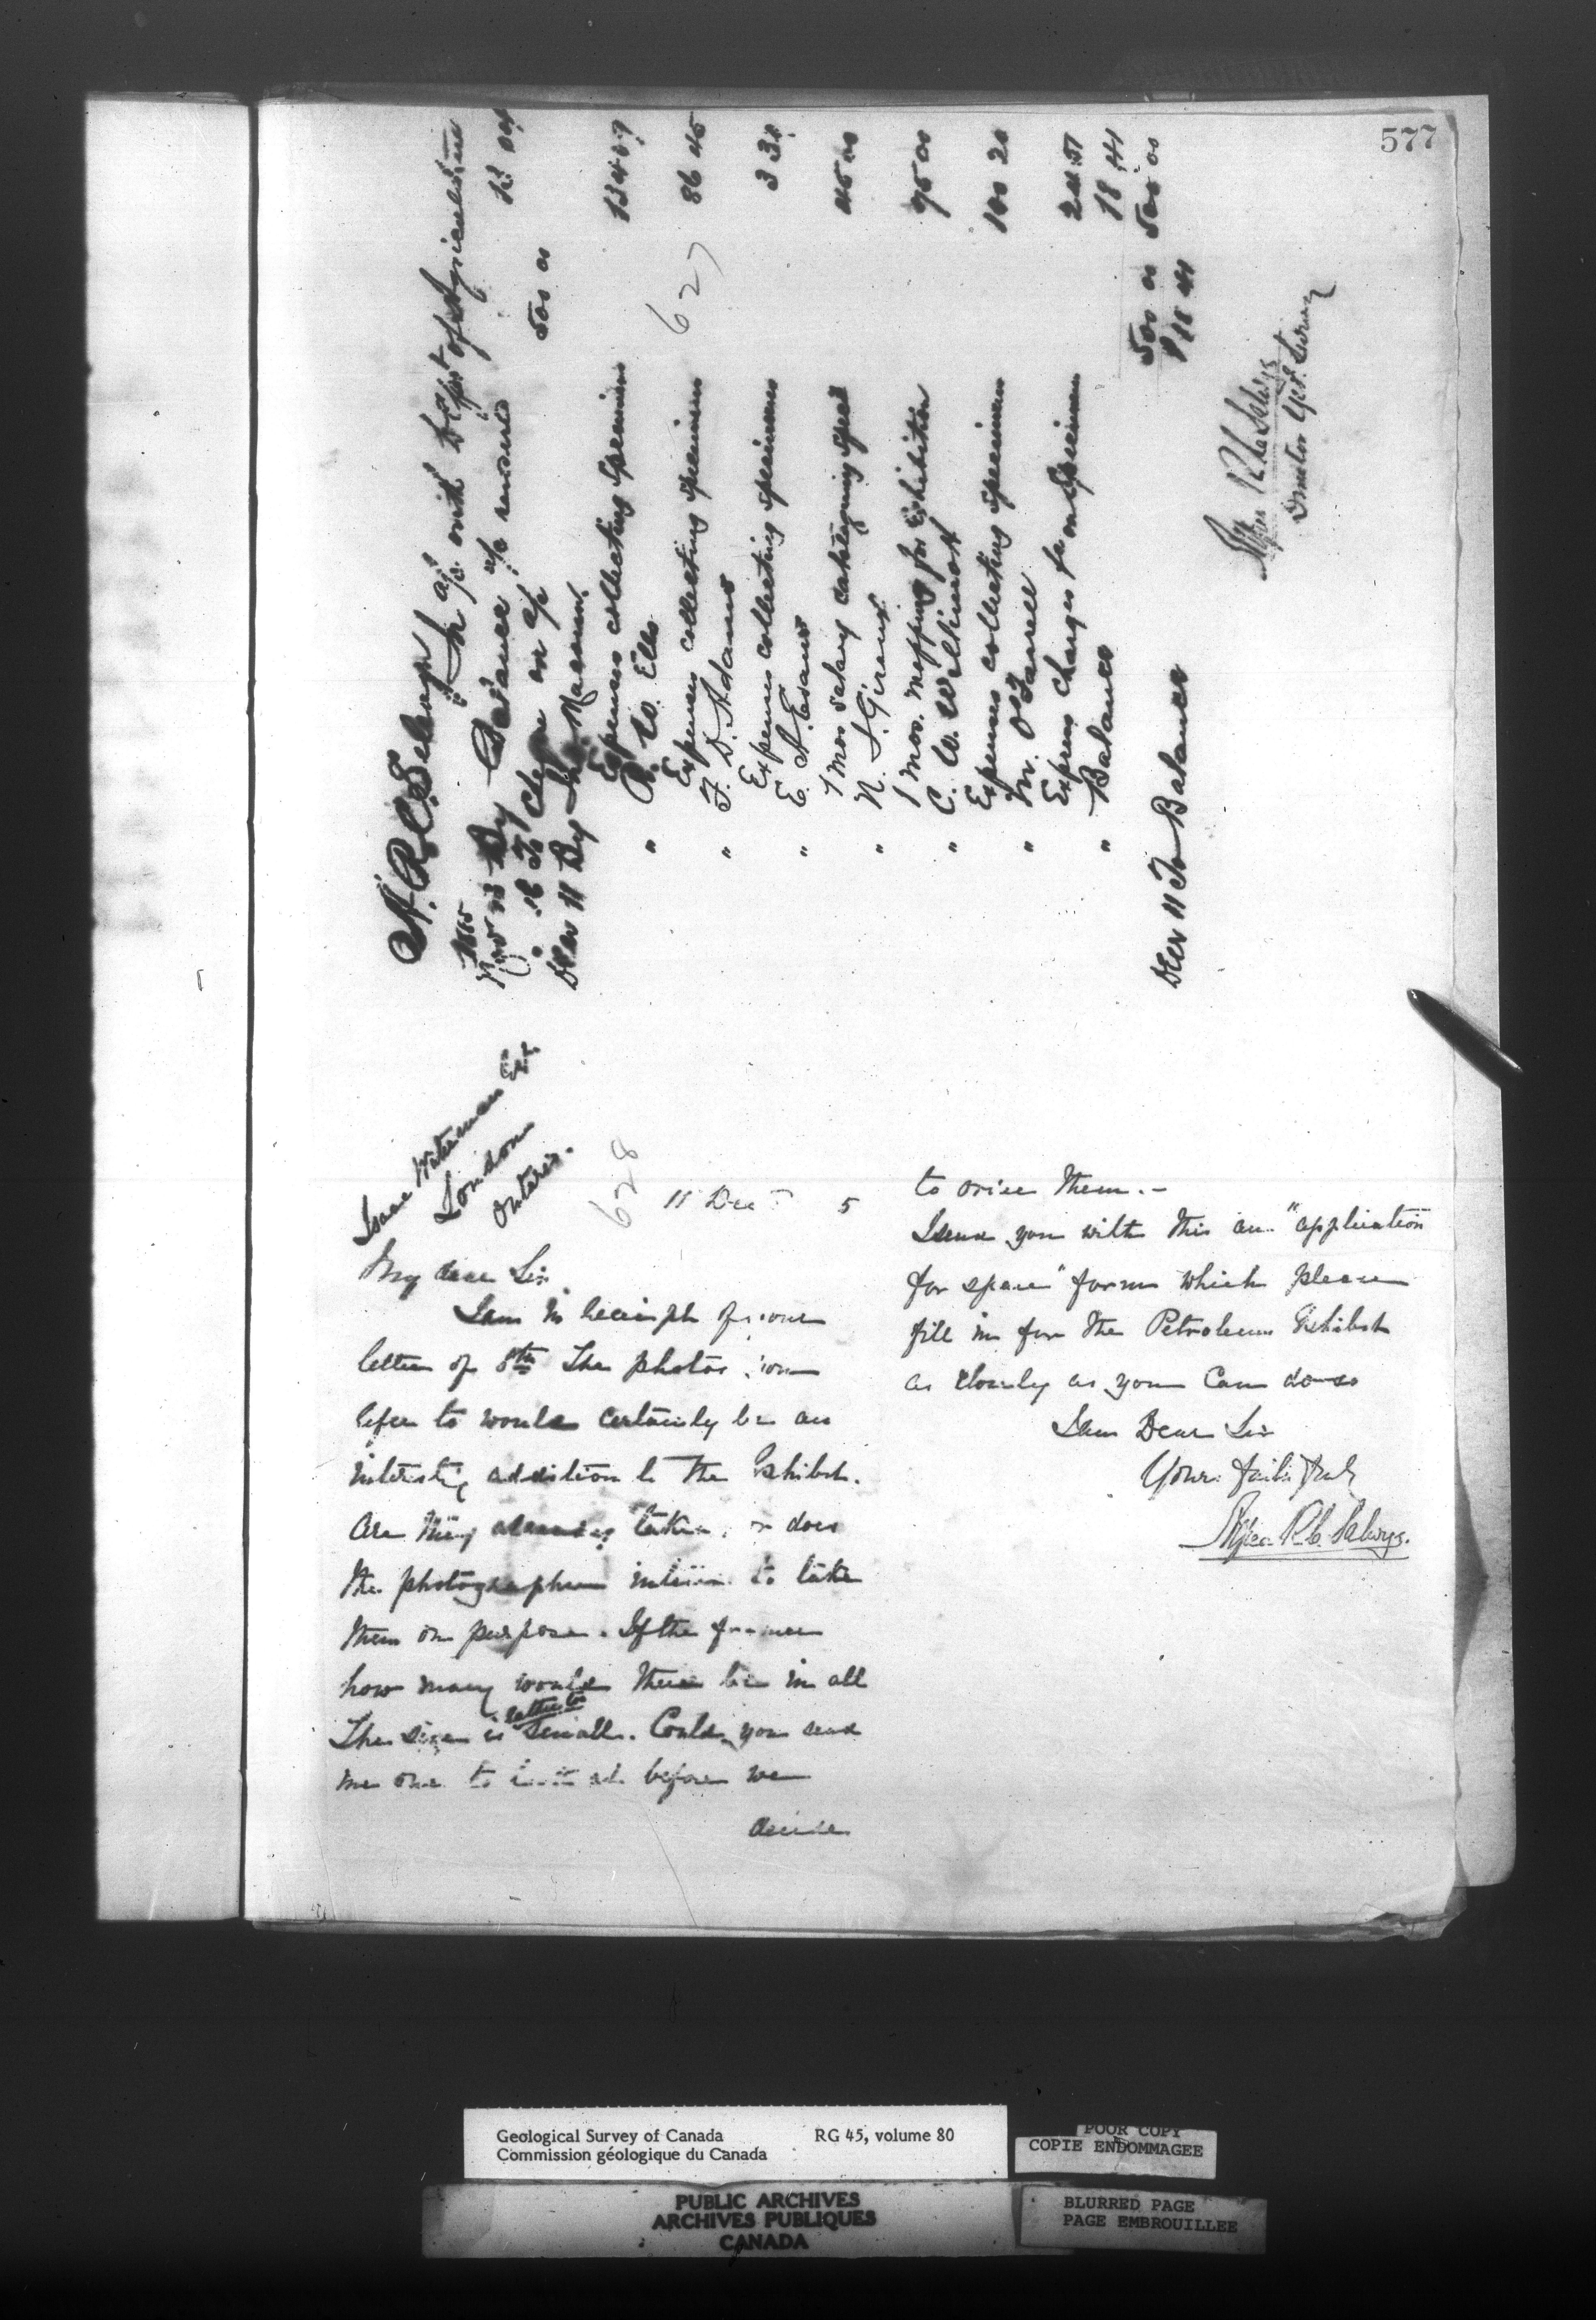 577
A. R. C. Selwyn
In a/c with Dept of Agriculture
1885
Nov 23 By Balance a/c rendered 12 04
" 28 To Cheque on a/c 500 00
Dec 11 By Macoun
Expenses collecting Specimens 134 09
" R. W. Ells
Expenses collecting Specimens 86 45
" F. D. Adams
Expenses collecting specimens 3 32
" E. A. Evans
1 Mos salary cataloguing Spec 45 00
" N. J. Giroux
1 Mos. mapping for Exhibition 75 00
" C. W. Willimott
Expenses collecting Specimens 100 20
" M. O'Farrell
Express Charges &c on Specimens
" Balance 18 41
500 00 500 00
Dec 11 To Balance $18 41
Alfred R C Selwyn
Director Geol. Survey
627
Isaac Waterman Esq
London
Ontario.
628
11 Dec 5
My dear Sir
I am in receipt of your
letter of 8th The photos you
refer to would certainly be an
interesting addition to the Exhibit.
Are they already taken, or does
the photographer intend to take
them on purpose. If the former
how many would there be in all
The size is rather too small. Could you send
me one to look at before we
decide
to orice them.-
I send you with this an "application
for space" form which please
fill in for the Petroleum Exhibit
as closely as you can do so
I am Dear Sir
Yours faithfully
Alfred R. C. Selwyn.
Geological Survey of Canada RG 45, volume 80
Commission géologique du Canada
POOR COPY
COPIE ENDOMMAGEE
PUBLIC ARCHIVES
ARCHIVES PUBLIQUES
CANADA
BLURRED PAGE
PAGE EMBROUILLEE